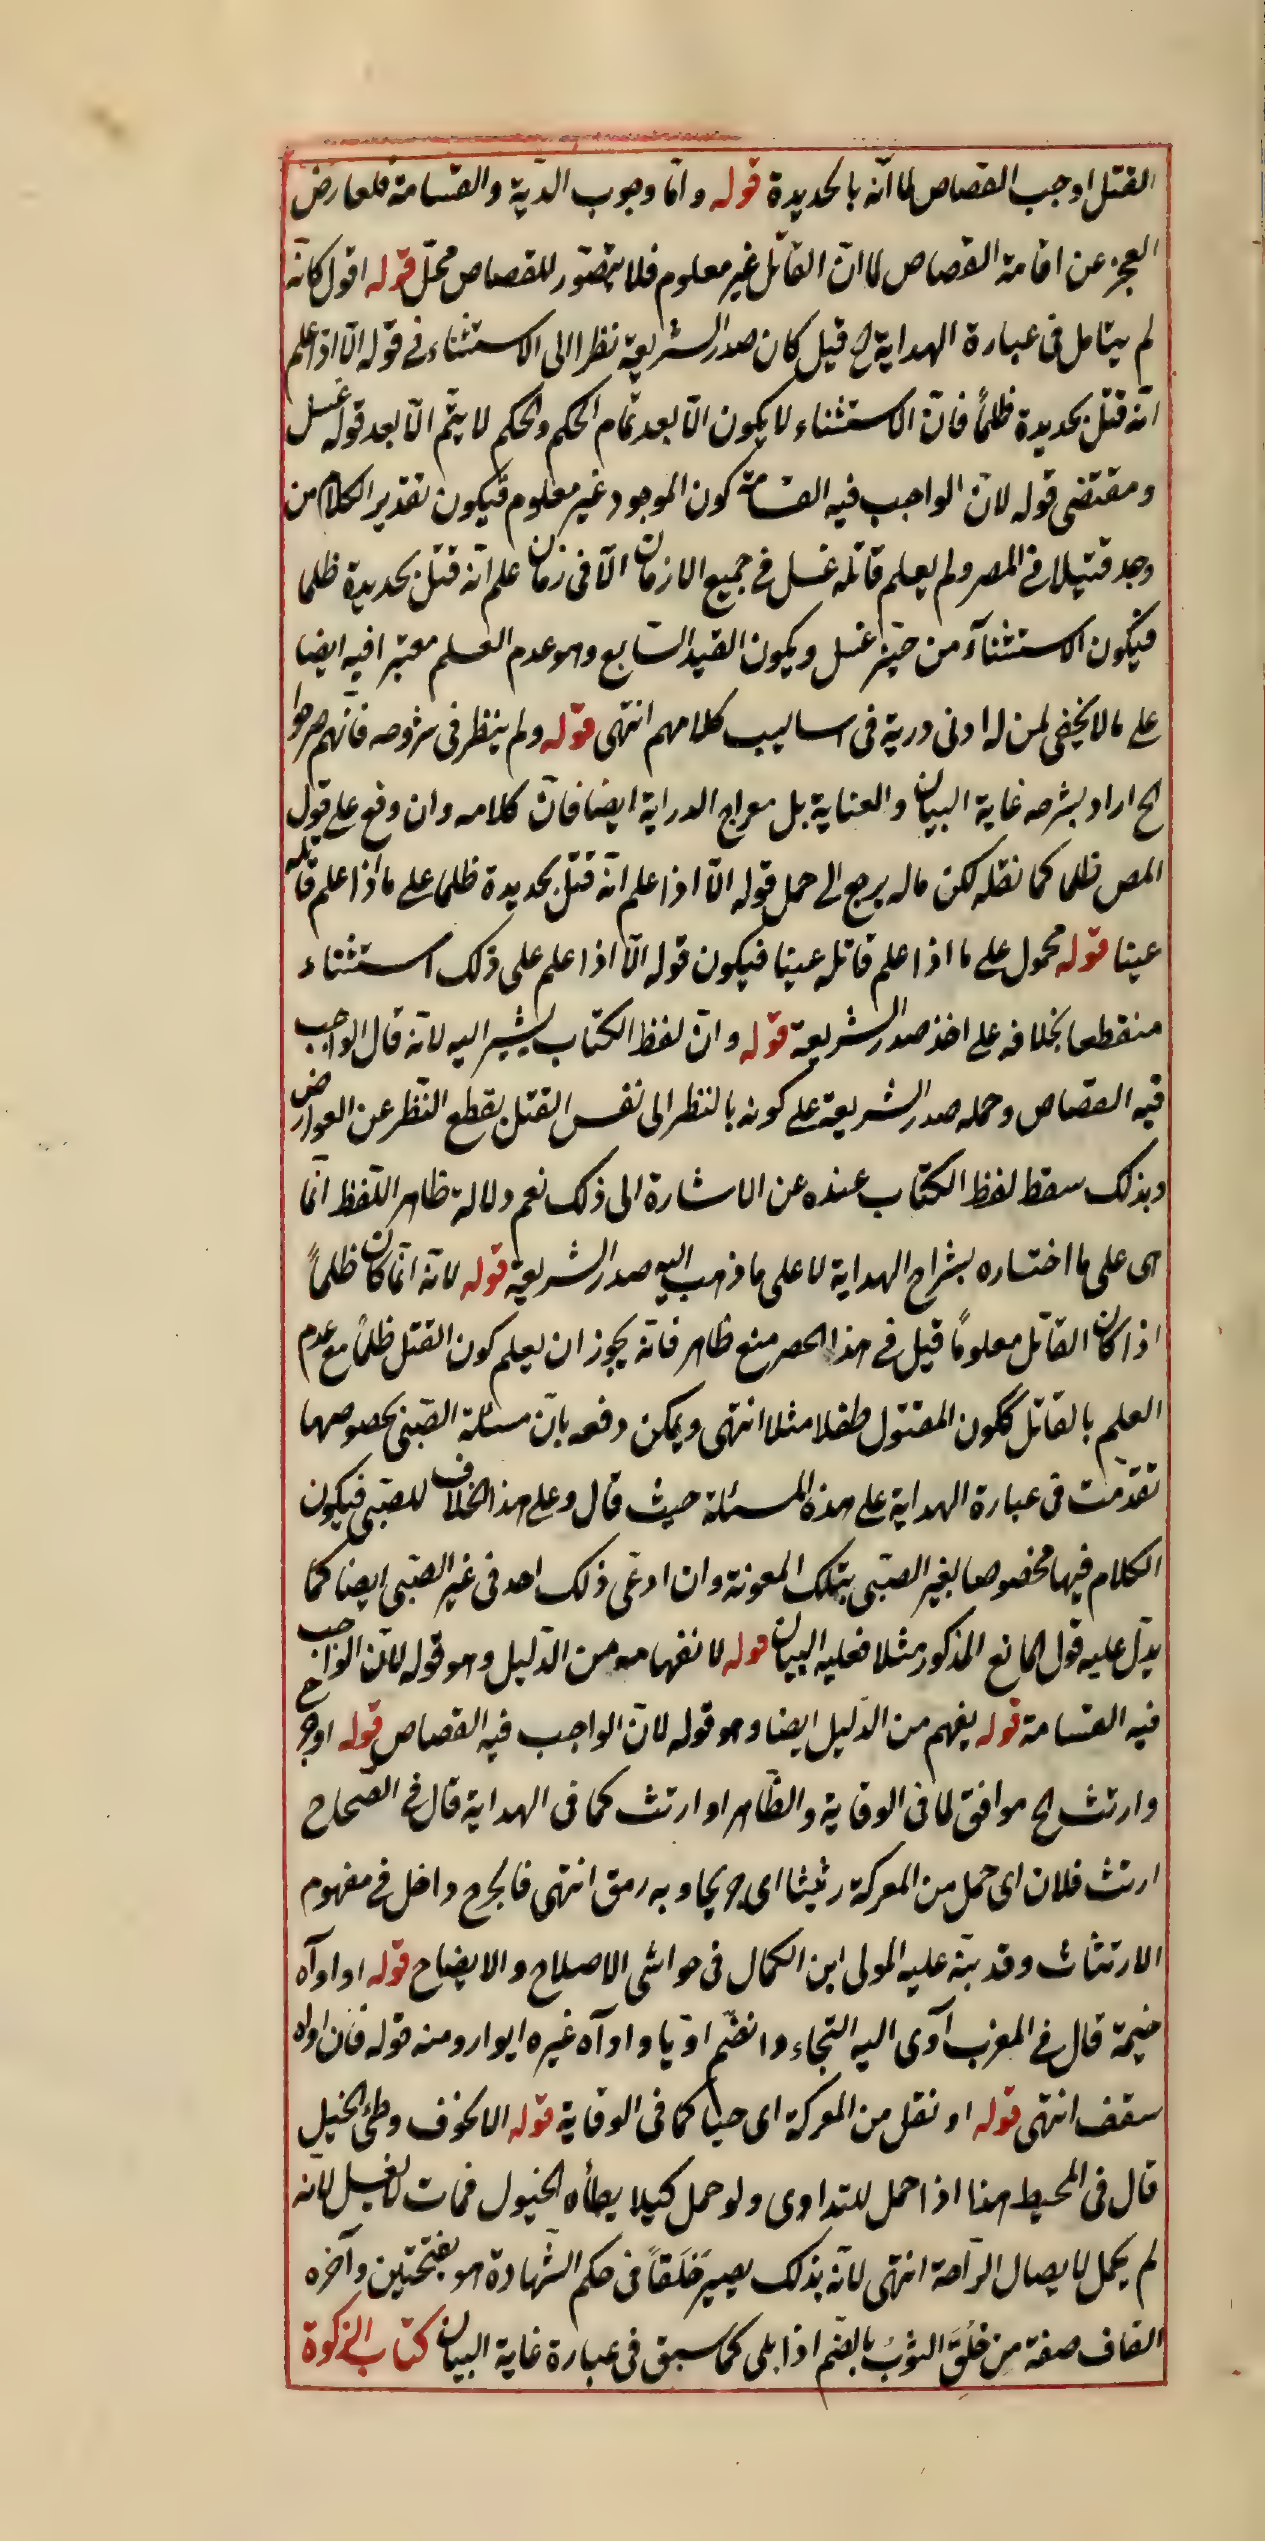 القتل اوجب القصاص لما انّه بالحديدة قوله وامّا وجوب الدّية والقسامة فلعارض
العجز عن اقامة القصاص لما انّ القاتل غير معلوم فلا يتصّور للقصاص محلّ قوله اقول كانّه
لم يتامل فى عبارة الهداية الخ قيل كان صدر الشريعة نظر الى الاستثناء فى قوله الّا اذا علم
انّه قتل بحديدة ظلماً فانّ الاستثناء لا يكون الّا بعد تمام الحكم والحكم لا يتمّ الّا بعد قوله غسل
ومقتضى قوله لانّ الواجب فيه القسامة كون الموجود غير معلوم فيكون تقدير الكلام من
وجد قتيلا فى المصر ولم يعلم قاتله غسل فى جميع الازمان الّا فى زمان علم انّه قتل بحديدة ظلما
فيكون الاستثناء من حيّز غسل ويكون القيد السّابع وهو عدم العلم معتبرا فيه ايضا
على ما لا يخفى لمن له ادنى درية فى اساليب كلامهم انتهى قوله ولم ينظر فى شروحه فانّهم صرحوا
الخ اراد بشرحه غاية البيان والعناية بل معراج الدراية ايضا فانّ كلامه وان وقع على قول
المص ظلما كما نقله لكن ماله يرجع الى حمل قوله الّا اذا علم انّه قتل بحديدة ظلما على ما اذا علم قاتله
عينا قوله محمول على ما اذا علم قاتله عينا فيكون قوله الّا اذا علم على ذلك استثناء
منقطعا بخلافه على اخذ صدر الشريعة قوله وانّ لفظ الكتاب يشير اليه لانّه قال الواجب
فيه القصاص وحمله صدر الشريعة على كونه بالنظر الى نفس القتل بقطع النّظر عن العوارض
وبذلك سقط لفظ الكتاب عنده عن الاشارة الى ذلك نعم دلالة ظاهر اللّفظ انّما
هى على ما اختاره بشراح الهداية لا على ما ذهب اليه صدر الشريعة قوله لانّه انّما كان ظلماً
اذا كان القاتل معلومًا قيل فى هذا الحصر منع ظاهر فانّه يجوز ان يعلم كون القتل ظلمًا مع عدم
العلم بالقاتل ككون المقتول طفلا مثلا انتهى ويمكن دفعه بانّ مسئلة الصّبى بخصوصها
تقدّمت فى عبارة الهداية على هذه المسئلة حيث قال وعلى هذا الخلاف للصّبى فيكون
الكلام فيها مخصوصا بغير الصّبى بتلك المعونة وان ادّعى ذلك احد فى غير الصّبى ايضا كما
يدّل عليه قول المانع المذكور مثلا فعليه البيان قوله لانفهامه من الدّليل وهو قوله لانّ الواجب
فيه القسامة قوله يفهم من الدّليل ايضا وهو قوله لانّ الواجب فيه القصاص قوله او جرح
وارتث الخ موافق لما فى الوقاية والظّاهر او ارتث كما فى الهداية قال فى الصحاح
ارتث فلان اى حمل من المعركة رثيثا اى جريحا وبه رمق انتهى فالجرح داخل فى مفهوم
الارتثاث وقد نبّه عليه المولى ابن الكمال فى حواشى الاصلاح والايضاح قوله او اوآه
خيمة قال فى المغرب آوى اليه التجاء وانضّم اوّيا واوآه غيره ايواء ومنه قوله فان اواه
سقف انتهى قوله او نقل من المعركة اى حيا كما فى الوقاية قوله الا لخوف وطئ الخيل
قال فى المحيط هذا اذا حمل للتداوى ولو حمل كيلا يطأه الخيول فمات لا يغسل لانّه
لم يحمل لايصال الرّاحة انتهى لانّه بذلك يصير خَلَقاً فى حكم الشّهادة هو بفتحتين وآخره
القاف صفة من خَلُقَ الثوبُ بالضّم اذا بلى كما سبق فى عبارة غاية البيان كتاب الزكوة